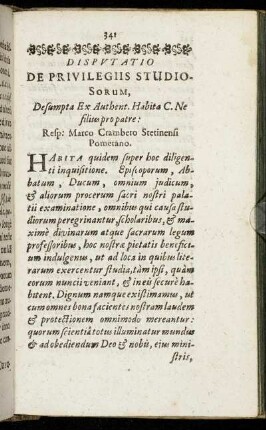 341
DISPVTATIO
DE PRIVILEGIIS STUDIO-
SORUM,
Desumpta Ex Authent. Habita C. Ne
filius pro patre:
Resp: Marco Crambero Stetinensi
Pomerano.
HABITA quidem super hoc diligen-
ti inquisitione. Episcoporum, Ab-
batum, Ducum, omnium judicum,
& aliorum procerum sacri nostri pala-
tii examinatione, omnibus qui causa stu-
diorum peregrinantur, scholaribus, & ma-
xime divinarum atque sacrarum legum
professoribus, hoc nostræ pietatis benefici-
um indulgemus, ut ad loca in quibus lite-
rarum exercentur studia, tàm ipsi, quàm
eorum nuncii veniant, & in eis securè ha-
bitent. Dignum namque existimamus, ut
cum omnes bona facientes nostram laudem
& protectionem omnimodo mereantur:
quorum scientiâ totus illuminatur mundus
& ad obediendum Deo & nobis, ejus mini-
stris,